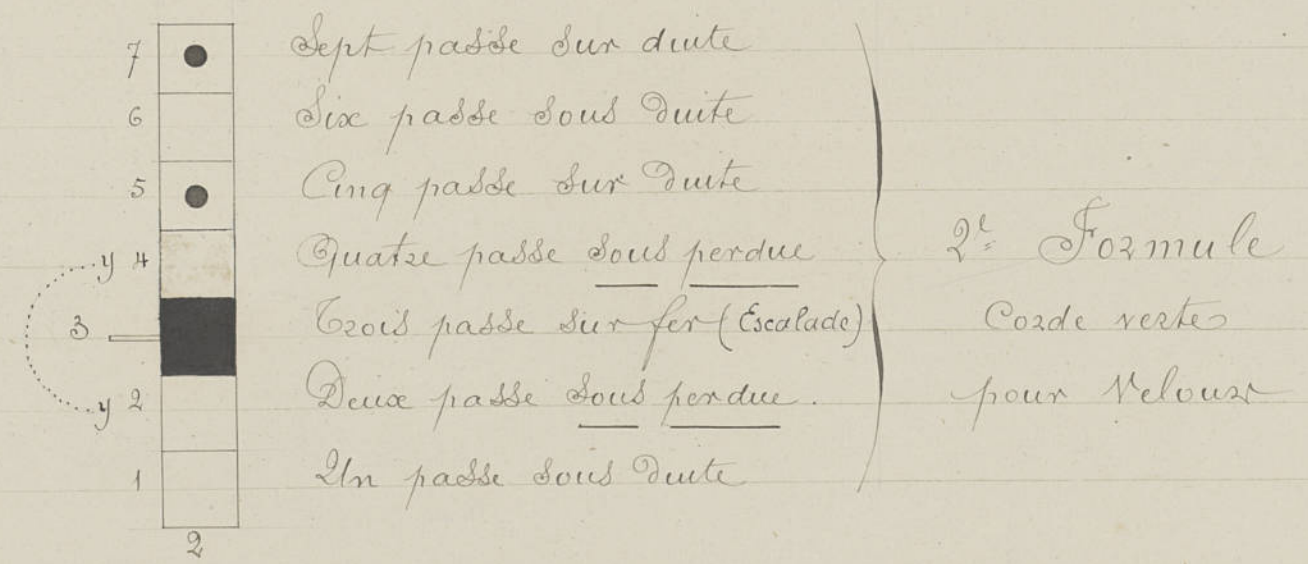 7 Sept passe sur duite
6 Six passe sous duite
5 Cinq passe sur duite
y 4 Quatre passe sous perdue
3 Trois passe sur fer (Escalade)
y 2 Deux passe sous perdue.
1 Un passe sous duite
2
2e Formule
Corde verte
pour Velours